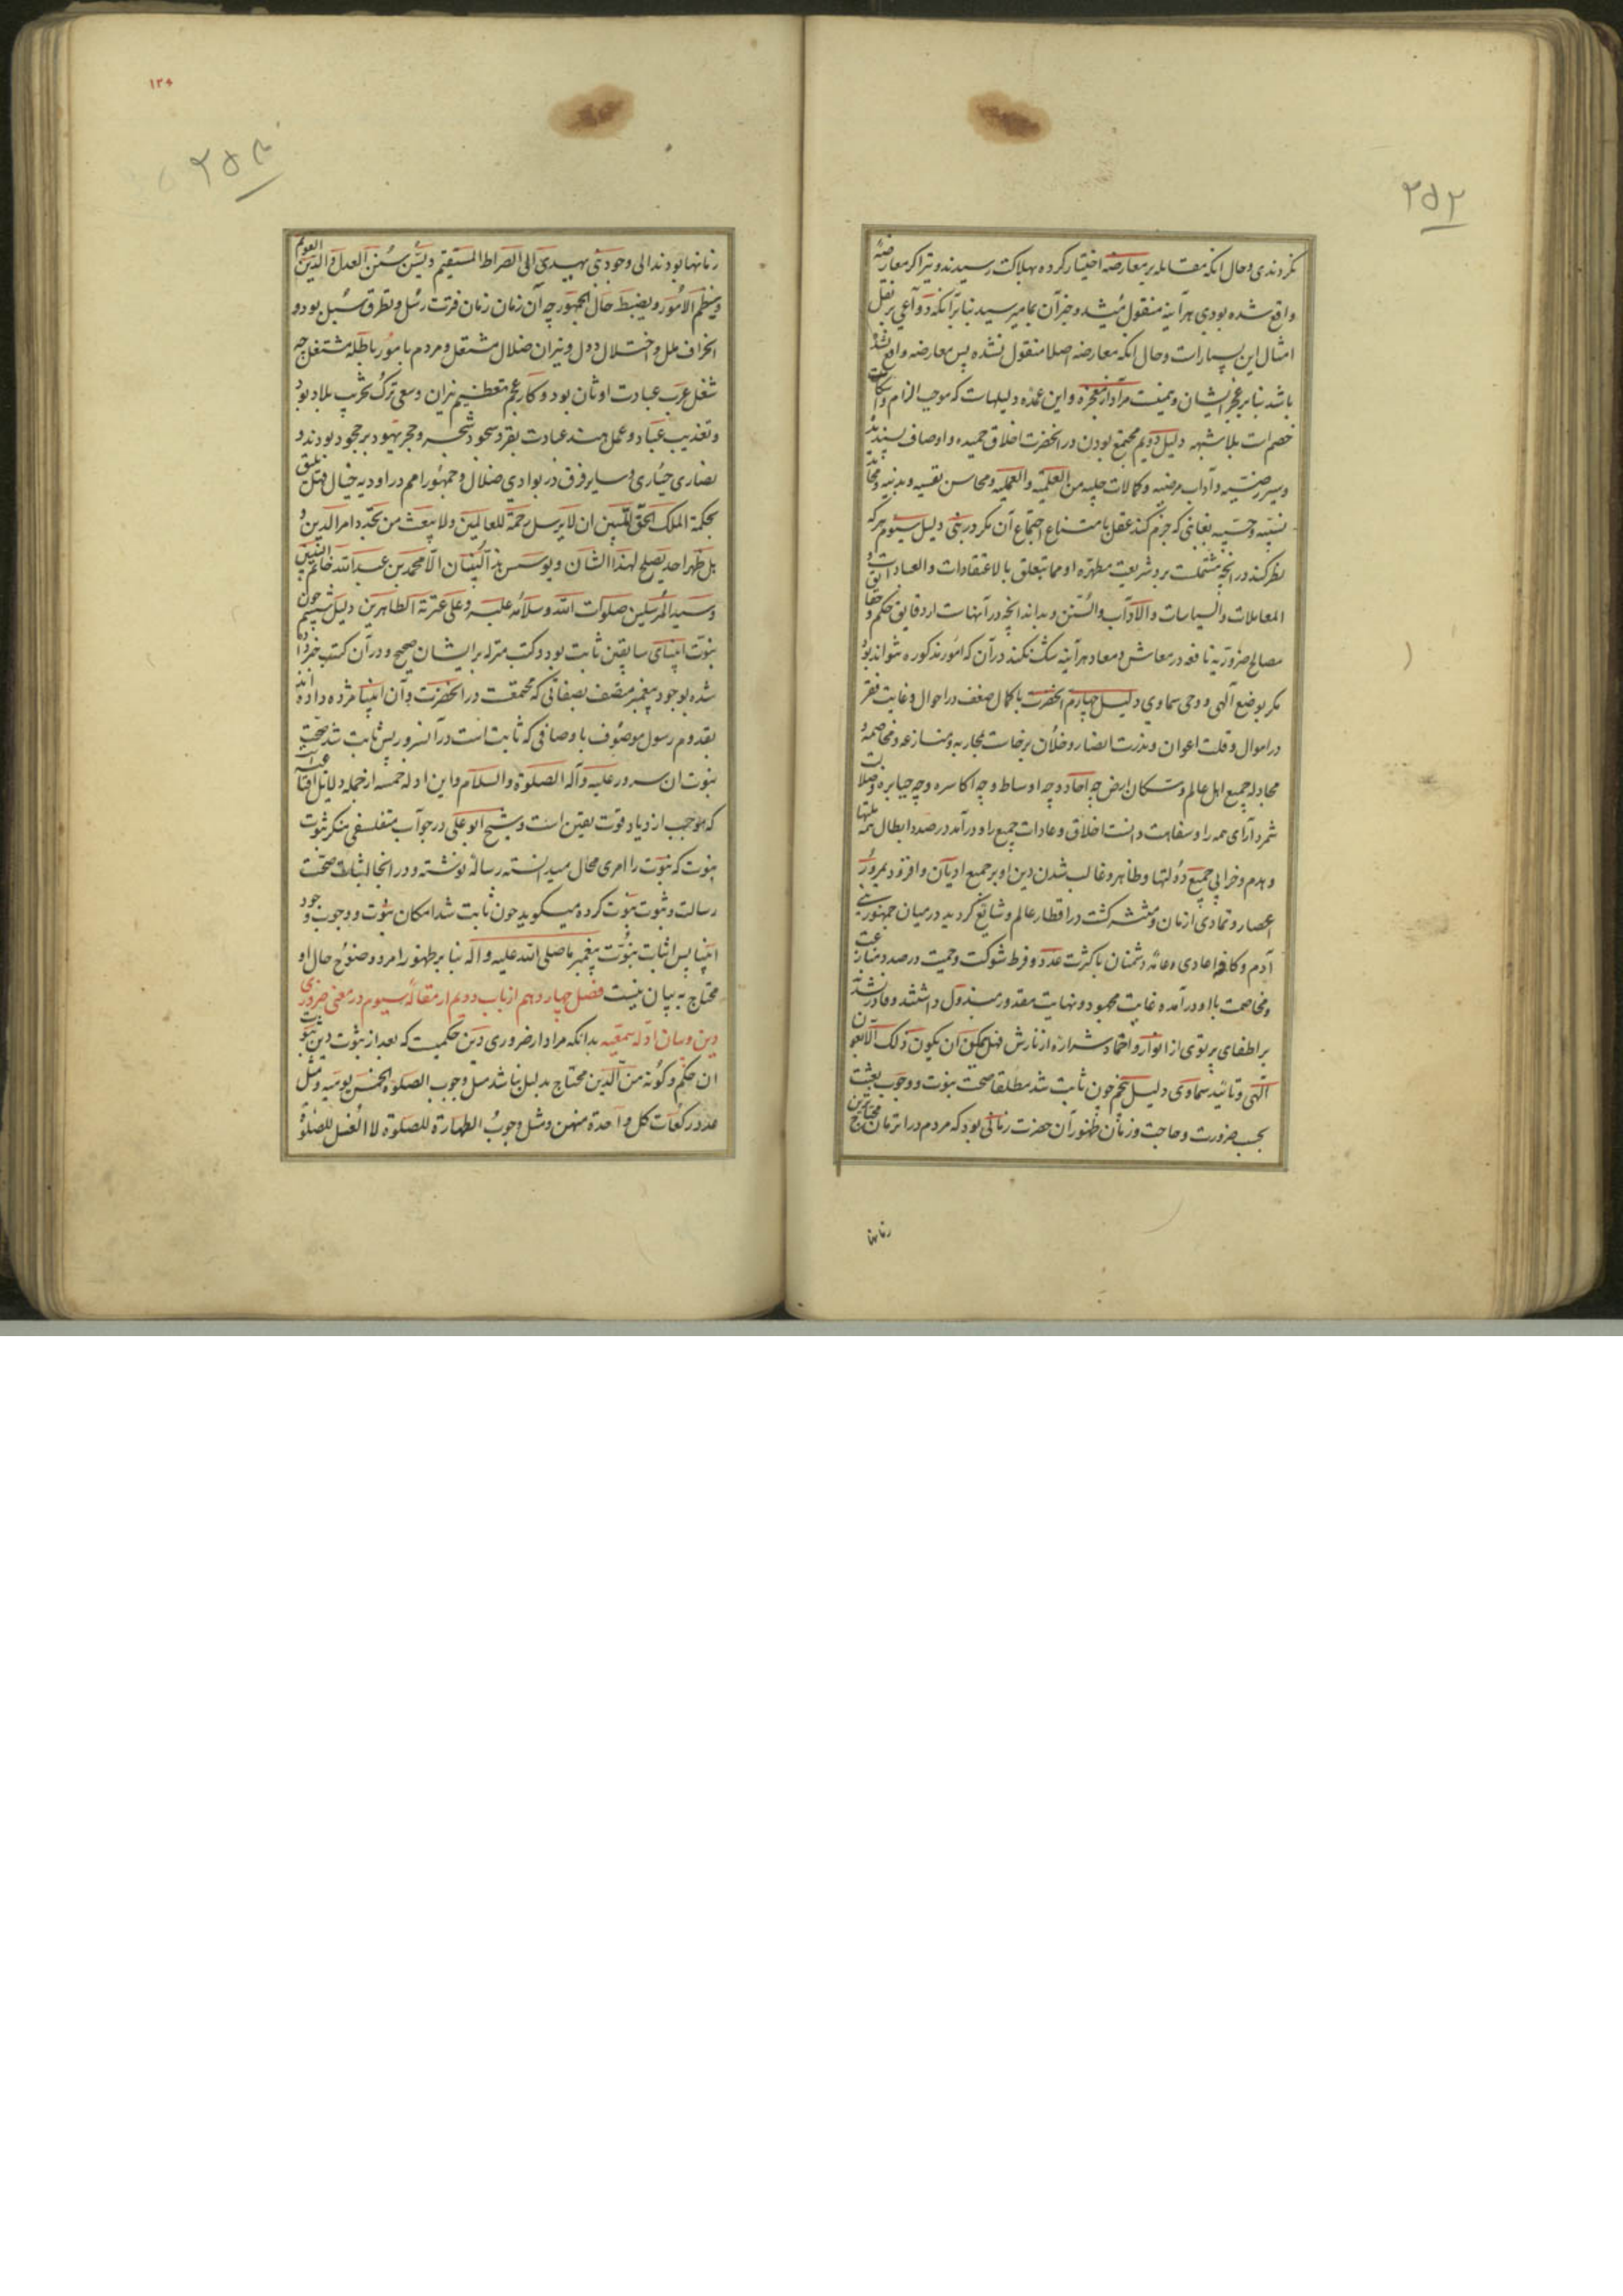 ۲۵۲
نکردندی و حال انکه مقابله بر معارضه اختیار کرده بهلاکت رسیدند و نیز اکر معارضهٔ
واقع شده بودی هر آینه منقول میشد و خبر آن بما میرسید بنا بر آنکه دواعی بر نقل
امثال این بسیارات و حال انکه معارضه اصلا منقول نشده پس معارضه واقع نشده
باشد بنا بر عجز ایشان و نیست مراد از معجزه و این عمده دلیلهاست که موجب الزام و اسکات
خصم است بلا شبهه دلیل دویم مجتمع بودن در انحضرت اخلاق حمیده و اوصاف پسندیده
و سیر رضیّه و آداب مرضیه و کمالات جلیه من العلمیه والعملیه و محاسن نفسیه و بدنیه و
نسبیّه و حسبیه بغایتی که جزم کند عقل بامتناع اجتماع آن مکر در نبی دلیل سیوم هر که
نظر کند در انچه مشتملست بر و شریعت مطهره او مما یتعلق بالاعتقادات والعبادات و
المعاملات والسیاسات والاداب والسنن و بداند انچه در آنهاست از دقایق حکم و
مصالح ضروریه نافعه در معاش و معاد هر آینه شک نکند در آن که امور مذکوره نتواند بود
مکر بوضع آلهی و وحی سماوی دلیل چهارم انحضرت با کمال ضعف در احوال و غایت فقر
در اموال و قلت اعوان و ندرت انصار و خلّان برخاست بمحاربه و منازعه و مخاصمه و
مجادله جمیع اهل عالم و سکان ارض چه احاد و چه اوساط و چه اکاسره و چه جبابره و
شمرد آرای همه را و سفاهت دانست اخلاق و عادات جمیع را و درآمد در صدد ابطال همه ملتها
و هدم و خرابی جمیع دولتها و ظاهر و غالب شدن دین او بر جمیع ادیان و افزود بمرور
اعصار و تمادی ازمان و منتشر کشت در اقطار عالم و شایع کردید در میان جمهور بنی
آدم و کافه اعادی و عامّه دشمنان با کثرت عدد و فرط شوکت و حمیت در صدد منازعت
و مخاصمت با او درآمده غایت مجهود و نهایت مقدور مبذول داشتند و قادر نشدند
بر اطفای پرتوی از انوار و اخماد شراره از نارش فهل یمکن ان یکون ذلک الا بعون
آلهی و تائید سماوی دلیل پنجم چون ثابت شد مطلقا صحت نبوت و وجوب بعثت
بحسب ضرورت و حاجت و زمان ظهور آن حضرت زمانی بود که مردم در ان زمان محتاج ترین
زمانها
۱۲۶
زمانها بودند الی وجود نبی یهدی الی الصراط المستقیم و یسن سنن العدل والدین القویم
و ینظم الامور و یضبط حال الجمهور چه آن زمان زمان فترت رسل و تطرق سبل بود و
انحراف ملل و اختلال دول و نیران ضلال مشتعل و مردم بامور باطله مشتغل چه
شغل عرب عبادت اوثان بود و کار عجم تعظیم نیران و سعی ترک تخریب بلاد بود
و تعذیب عباد و عمل هند عبادت بقر و سجود شجر و حجر یهود بر جحود بودند و
نصاری حیاری و سایر فرق در بوادی ضلال و جمهور امم در اودیه خیال فهل یلیق
بحکمة الملک الحق المبین ان لا یرسل رحمة للعالمین ولا یبعث من یجدد امر الدین و
بل ظهر احد یصلح لهذا الشان و یوسس هذا البنیان الا محمد بن عبد الله خاتم النبیین
و سید المرسلین صلوات الله و سلامه علیه و علی عترته الطاهرین دلیل ششم چون
نبوت انبیای سابقین ثابت بود و کتب منزله بر ایشان صحیح و در آن کتب خبر داده
شده بوجود پیغمبر متصف بصفاتی که مجتمعست در انحضرت و آن انبیا مژده داده اند
بقدوم رسول موصوف باوصافی که ثابت است در آنسرور پس ثابت شد صحت
نبوت ان سرور علیه و آله الصلوة والسلام و این ادله خمسه از جمله دلایل اقناعیه است
که موجب ازدیاد قوت یقین است و شیخ ابو علی در جواب متفلسفی منکر ثبوت
نبوت که نبوت را امری محال میدانسته رسالهٔ نوشته و در انجا اثبات صحت
رسالت و ثبوت نبوت کرده میکوید چون ثابت شد امکان نبوت و وجوب وجود
انبیا پس اثبات نبوت پیغمبر ما صلی الله علیه و اله بنا بر ظهور امر و وضوح حال او
محتاج به بیان نیست فصل چهاردهم از باب دویم از مقاله سیوم در معنی ضروری
دین و بیان ادله سمعیه بدانکه مراد از ضروری دین حکمیست که بعد از ثبوت دین ثبوت
ان حکم و کونه من الدین محتاج بدلیل نباشد مثل وجوب الصلوة الخمس یومیه و مثل
عدد رکعات کل واحدة منهن و مثل وجوب الطهارة للصلوة لا الغسل للصلوة